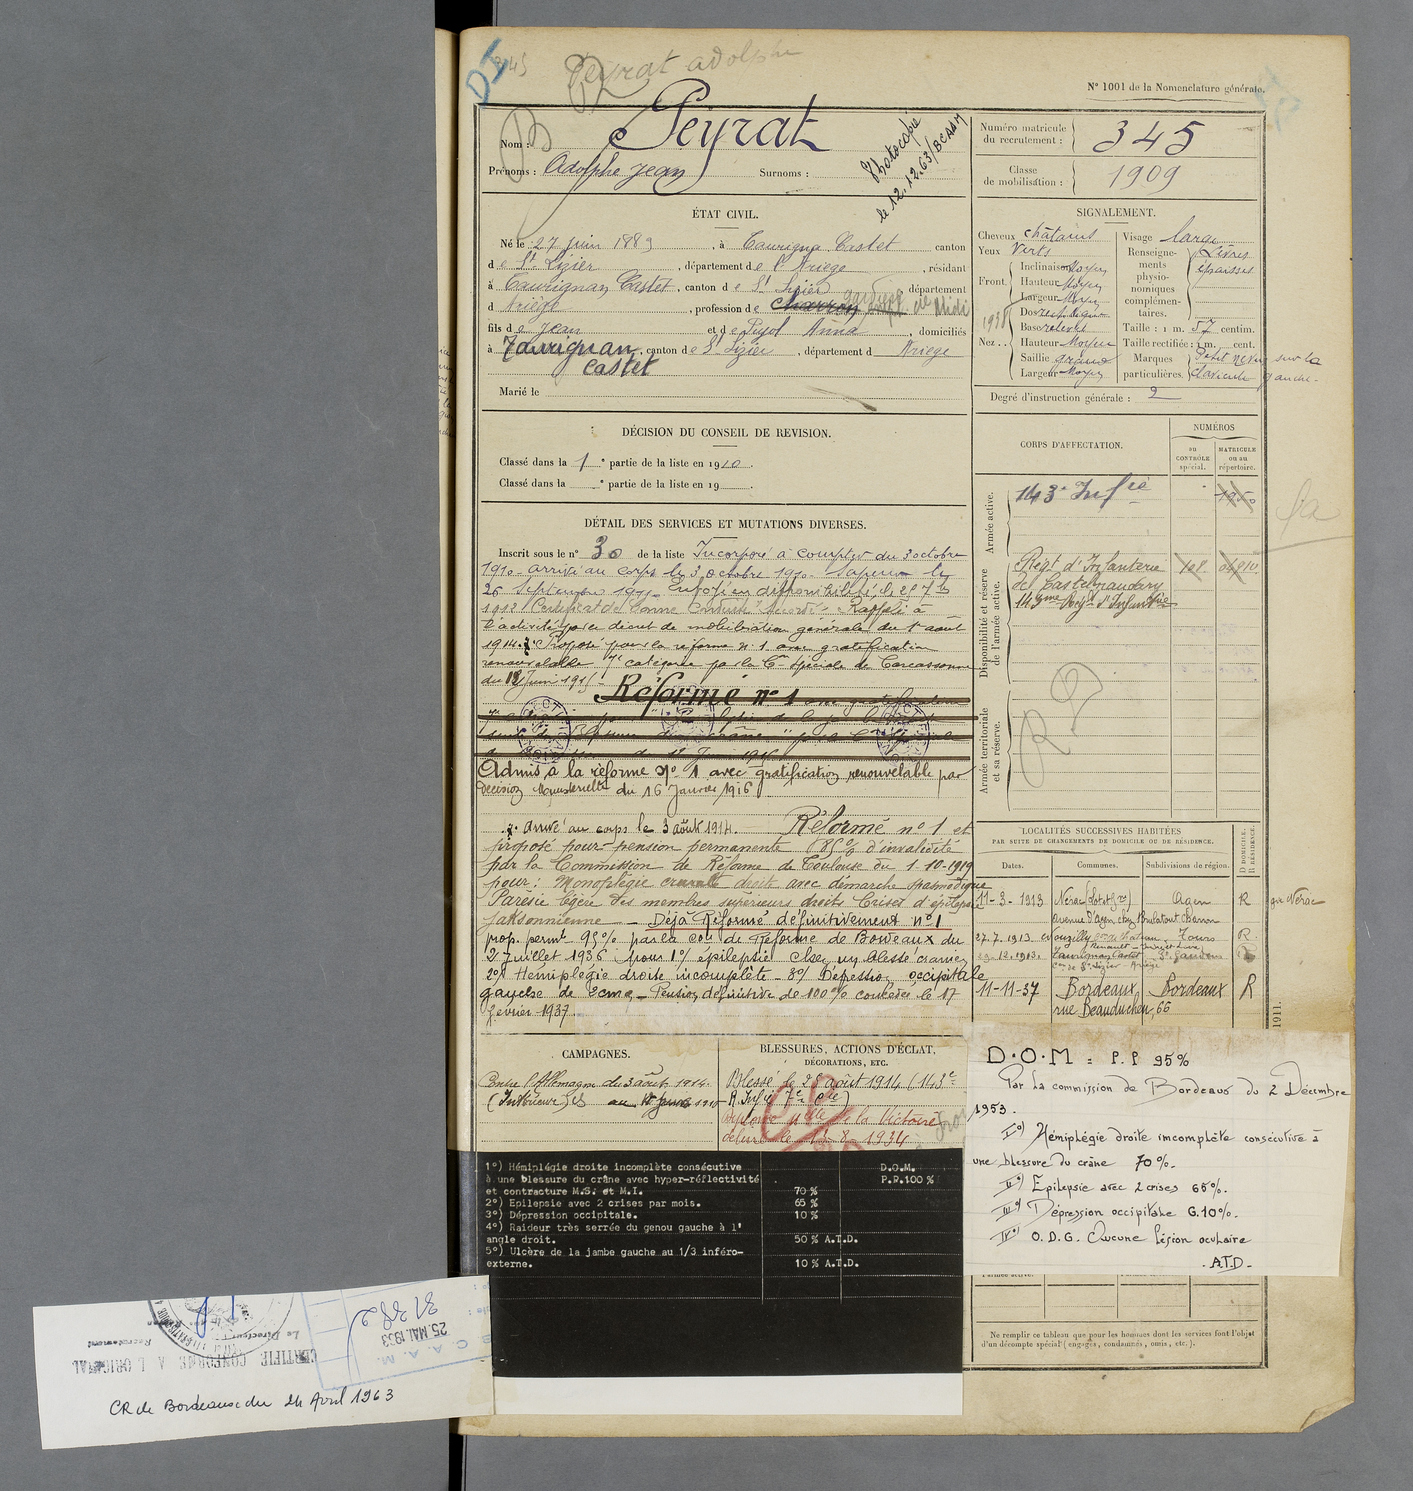 Peyrat adolphe
N° 1001 de la Nomenclature générale.
Nom : Peyrat
Prénoms : Adolphe Jean Surnoms :
Photocopié
le 12.12.63/BCAAM
Numéro matricule du recrutement : 345
Classe de mobilisation : 1909
ÉTAT CIVIL.
Né le 27 juin 1889, à Taurignan Castet canton
de St Lizier, département de l'Ariège, résidant
à Taurignan Castet, canton de St Lizier département
d Ariège, profession de charron
fils de Jean et de Pujol Anna, domiciliés
à Taurignan Castet, canton de St Lizier, département d Ariège
Marié le
SIGNALEMENT.
Cheveux châtains
Yeux verts
Front. Inclinaison Moyen
Hauteur Moyen
Largeur Moyen
Nez. Dos rect.
Base relevée
Hauteur Moyen
Saillie grand
Largeur Moyen
1938
Visage large
Renseignements physionomiques complémentaires. Lèvres épaisses
Taille : 1 m. 57 centim.
Taille rectifiée : 1 m. cent.
Marques particulières. Petit nevus sur la clavicule gauche.
Degré d'instruction générale : 2
DÉCISION DU CONSEIL DE REVISION.
Classé dans la 1e partie de la liste en 1910.
Classé dans la e partie de la liste en 19 .
DÉTAIL DES SERVICES ET MUTATIONS DIVERSES.
Inscrit sous le n° 30 de la liste Incorporé à compter du 3 octobre
1910 arrivé au corps le 3 octobre 1910
26 Septembre 1911 Envoyé en disponibilité le 25 7bre
1912 Certificat de bonne Conduite "Accordé" Rappelé à
l'activité par décret de mobilisation générale du 1er août
1914. Proposé pour la réforme n° 1 avec gratification
renouvelable 7e catégorie par la Con spéciale de Carcassonne
du 18 juin 1915
Réformé n° 1 avec gratification
Admis à la réforme No 1 avec gratification renouvelable par
décision Ministérielle du 16 Janvier 1916
arrivé au corps le 3 août 1914. Réformé n° 1 et
proposé pour pension permanente (85% d'invalidité
par la Commission de Réforme de Toulouse du 1-10-1919
pour : Monoplégie crurale droite avec démarche spasmodique
Parésie légère des membres supérieurs droits Crises d'épilepsie
jaksonnienne - Déjà Réformé définitivement n° 1
prop. permte 95% par la con de Réforme de Bordeaux du
2 Juillet 1936 pour 1°/ épilepsie chez un blessé cranien
2°/ Hémiplégie droite incomplète - 3°/ Dépression occipitale
gauche de 2cmq - Pension définitive de 100% concédée le 17
février 1937
CORPS D'AFFECTATION.
NUMÉROS
au CONTRÔLE spécial.
MATRICULE ou au répertoire.
Armée active.
143e Infrie
Disponibilité et réserve de l'armée active.
Régt d'Infanterie
de Castelnaudary
143eme Régt d'Infanterie
Armée territoriale et sa réserve.
LOCALITÉS SUCCESSIVES HABITÉES
PAR SUITE DE CHANGEMENTS DE DOMICILE OU DE RÉSIDENCE.
Dates. Communes. Subdivisions de région. D DOMICILE. R RÉSIDENCE.
11-3-1913 Nérac (Lot et Gne) Agen R
avenue d'Agen chez
27.7.1913 Nouzilly Tours R
29.12.1913. Taurignan Castet St Gaudens
11-11-37 Bordeaux Bordeaux R
rue Beauduchen, 66
1911.
CAMPAGNES.
Contre l'Allemagne du 3 août 1914.
(Intérieur) au 18 juin 1915
BLESSURES, ACTIONS D'ÉCLAT, DÉCORATIONS, ETC.
Blessé le 25 août 1914 (143e
R. Infie 7e Cie)
Médaille de la Victoire
délivré le 13-8-1934
D.O.M = P.P 95%
Par la commission de Bordeaux du 2 Décembre
1953.
I°) Hémiplégie droite incomplète consécutive à
une blessure du crâne 70%.
II°) Epilepsie avec 2 crises 65%.
III°) Dépression occipitale G. 10%.
IV°) O.D.G. Aucune lésion oculaire
- A.T.D -
1°) Hémiplégie droite incomplète consécutive
à une blessure du crâne avec hyper-réflectivité
et contracture M.S. et M.I. 70 %
2°) Epilepsie avec 2 crises par mois. 65 %
3°) Dépression occipitale. 10 %
4°) Raideur très serrée du genou gauche à l'
angle droit. 50 % A.T.D.
5°) Ulcère de la jambe gauche au 1/3 inféro-
externe. 10 % A.T.D.
D.O.M.
P.P.100 %
Ne remplir ce tableau que pour les hommes dont les services font l'objet
d'un décompte spécial (engagés, condamnés, omis, etc.).
CERTIFIE CONFORME A L ORIGINAL
Le Directeur
Recrutement
25. MAI. 1963
C. A. A. M.
CR de Bordeaux du 24 Avril 1963